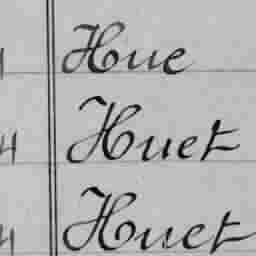 Hue
4 Huet
4 Huet